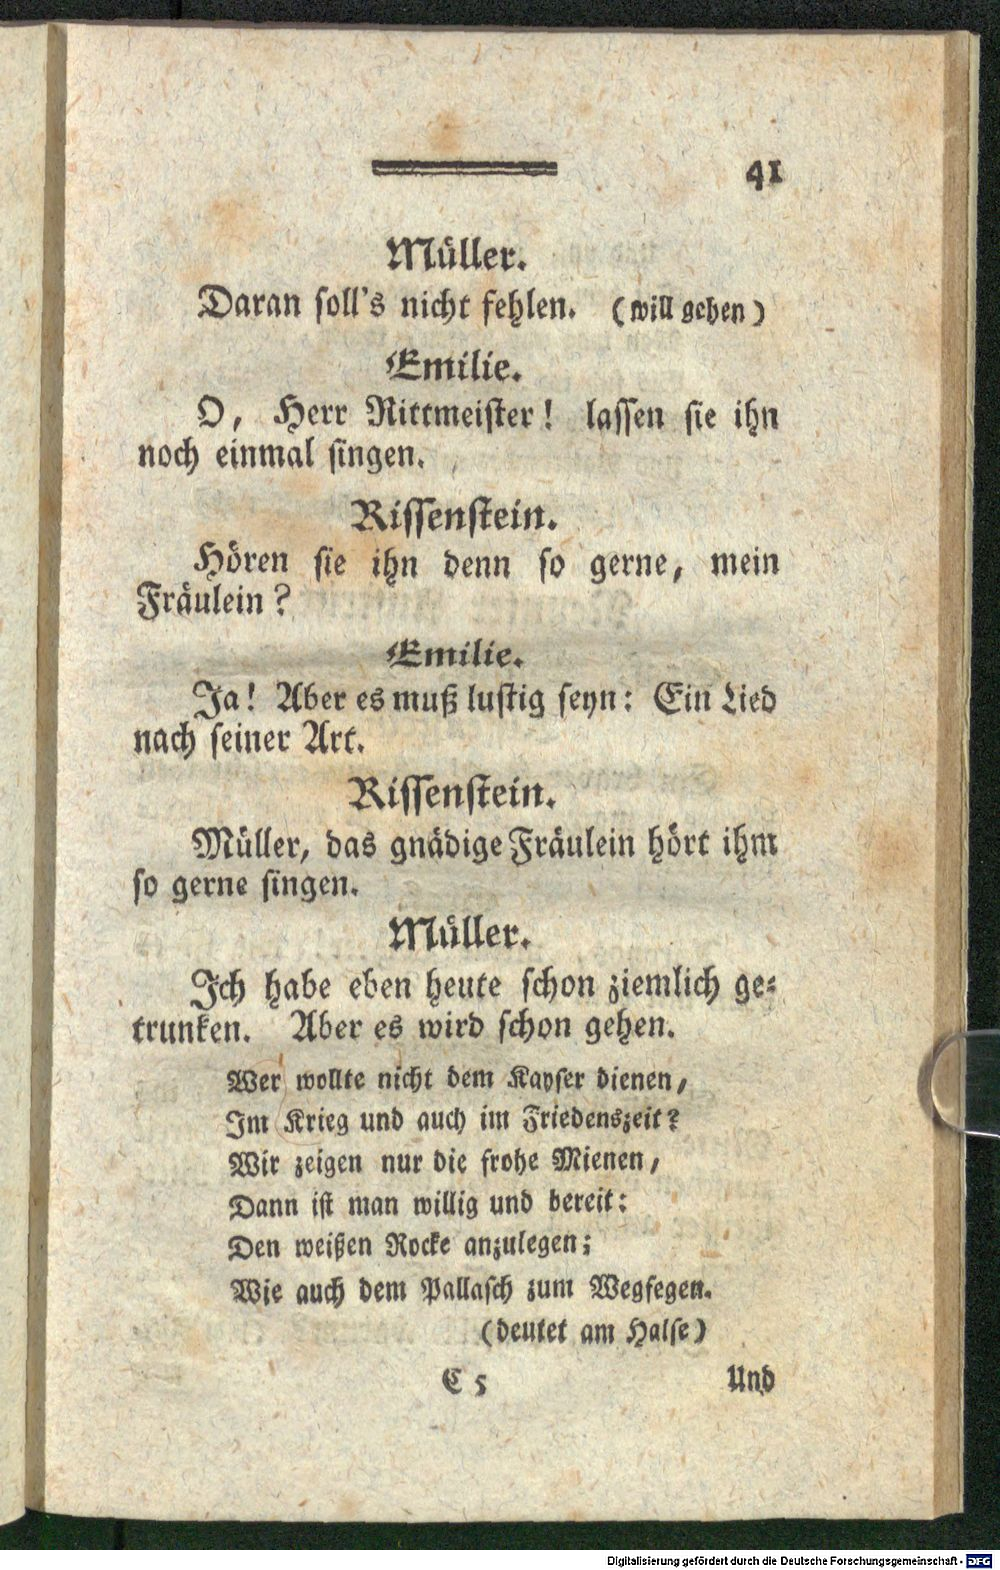 41
Müller.
Daran soll's nicht fehlen. (will gehen)
Emilie.
O, Herr Rittmeister! lassen sie ihn
noch einmal singen.
Rissenstein.
Hören sie ihn denn so gerne, mein
Fräulein?
Emilie.
Ja! Aber es muß lustig seyn: Ein Lied
nach seiner Art.
Rissenstein.
Müller, das gnädige Fräulein hört ihm
so gerne singen.
Müller.
Ich habe eben heute schon ziemlich ge-
trunken. Aber es wird schon gehen.
Wer wollte nicht dem Kayser dienen,
Im Krieg und auch im Friedenszeit?
Wir zeigen nur die frohe Mienen,
Dann ist man willig und bereit:
Den weißen Rocke anzulegen;
Wie auch dem Pallasch zum Wegfegen.
(deutet am Halse)
C 5 Und
Digitalisierung gefördert durch die Deutsche Forschungsgemeinschaft - DFG